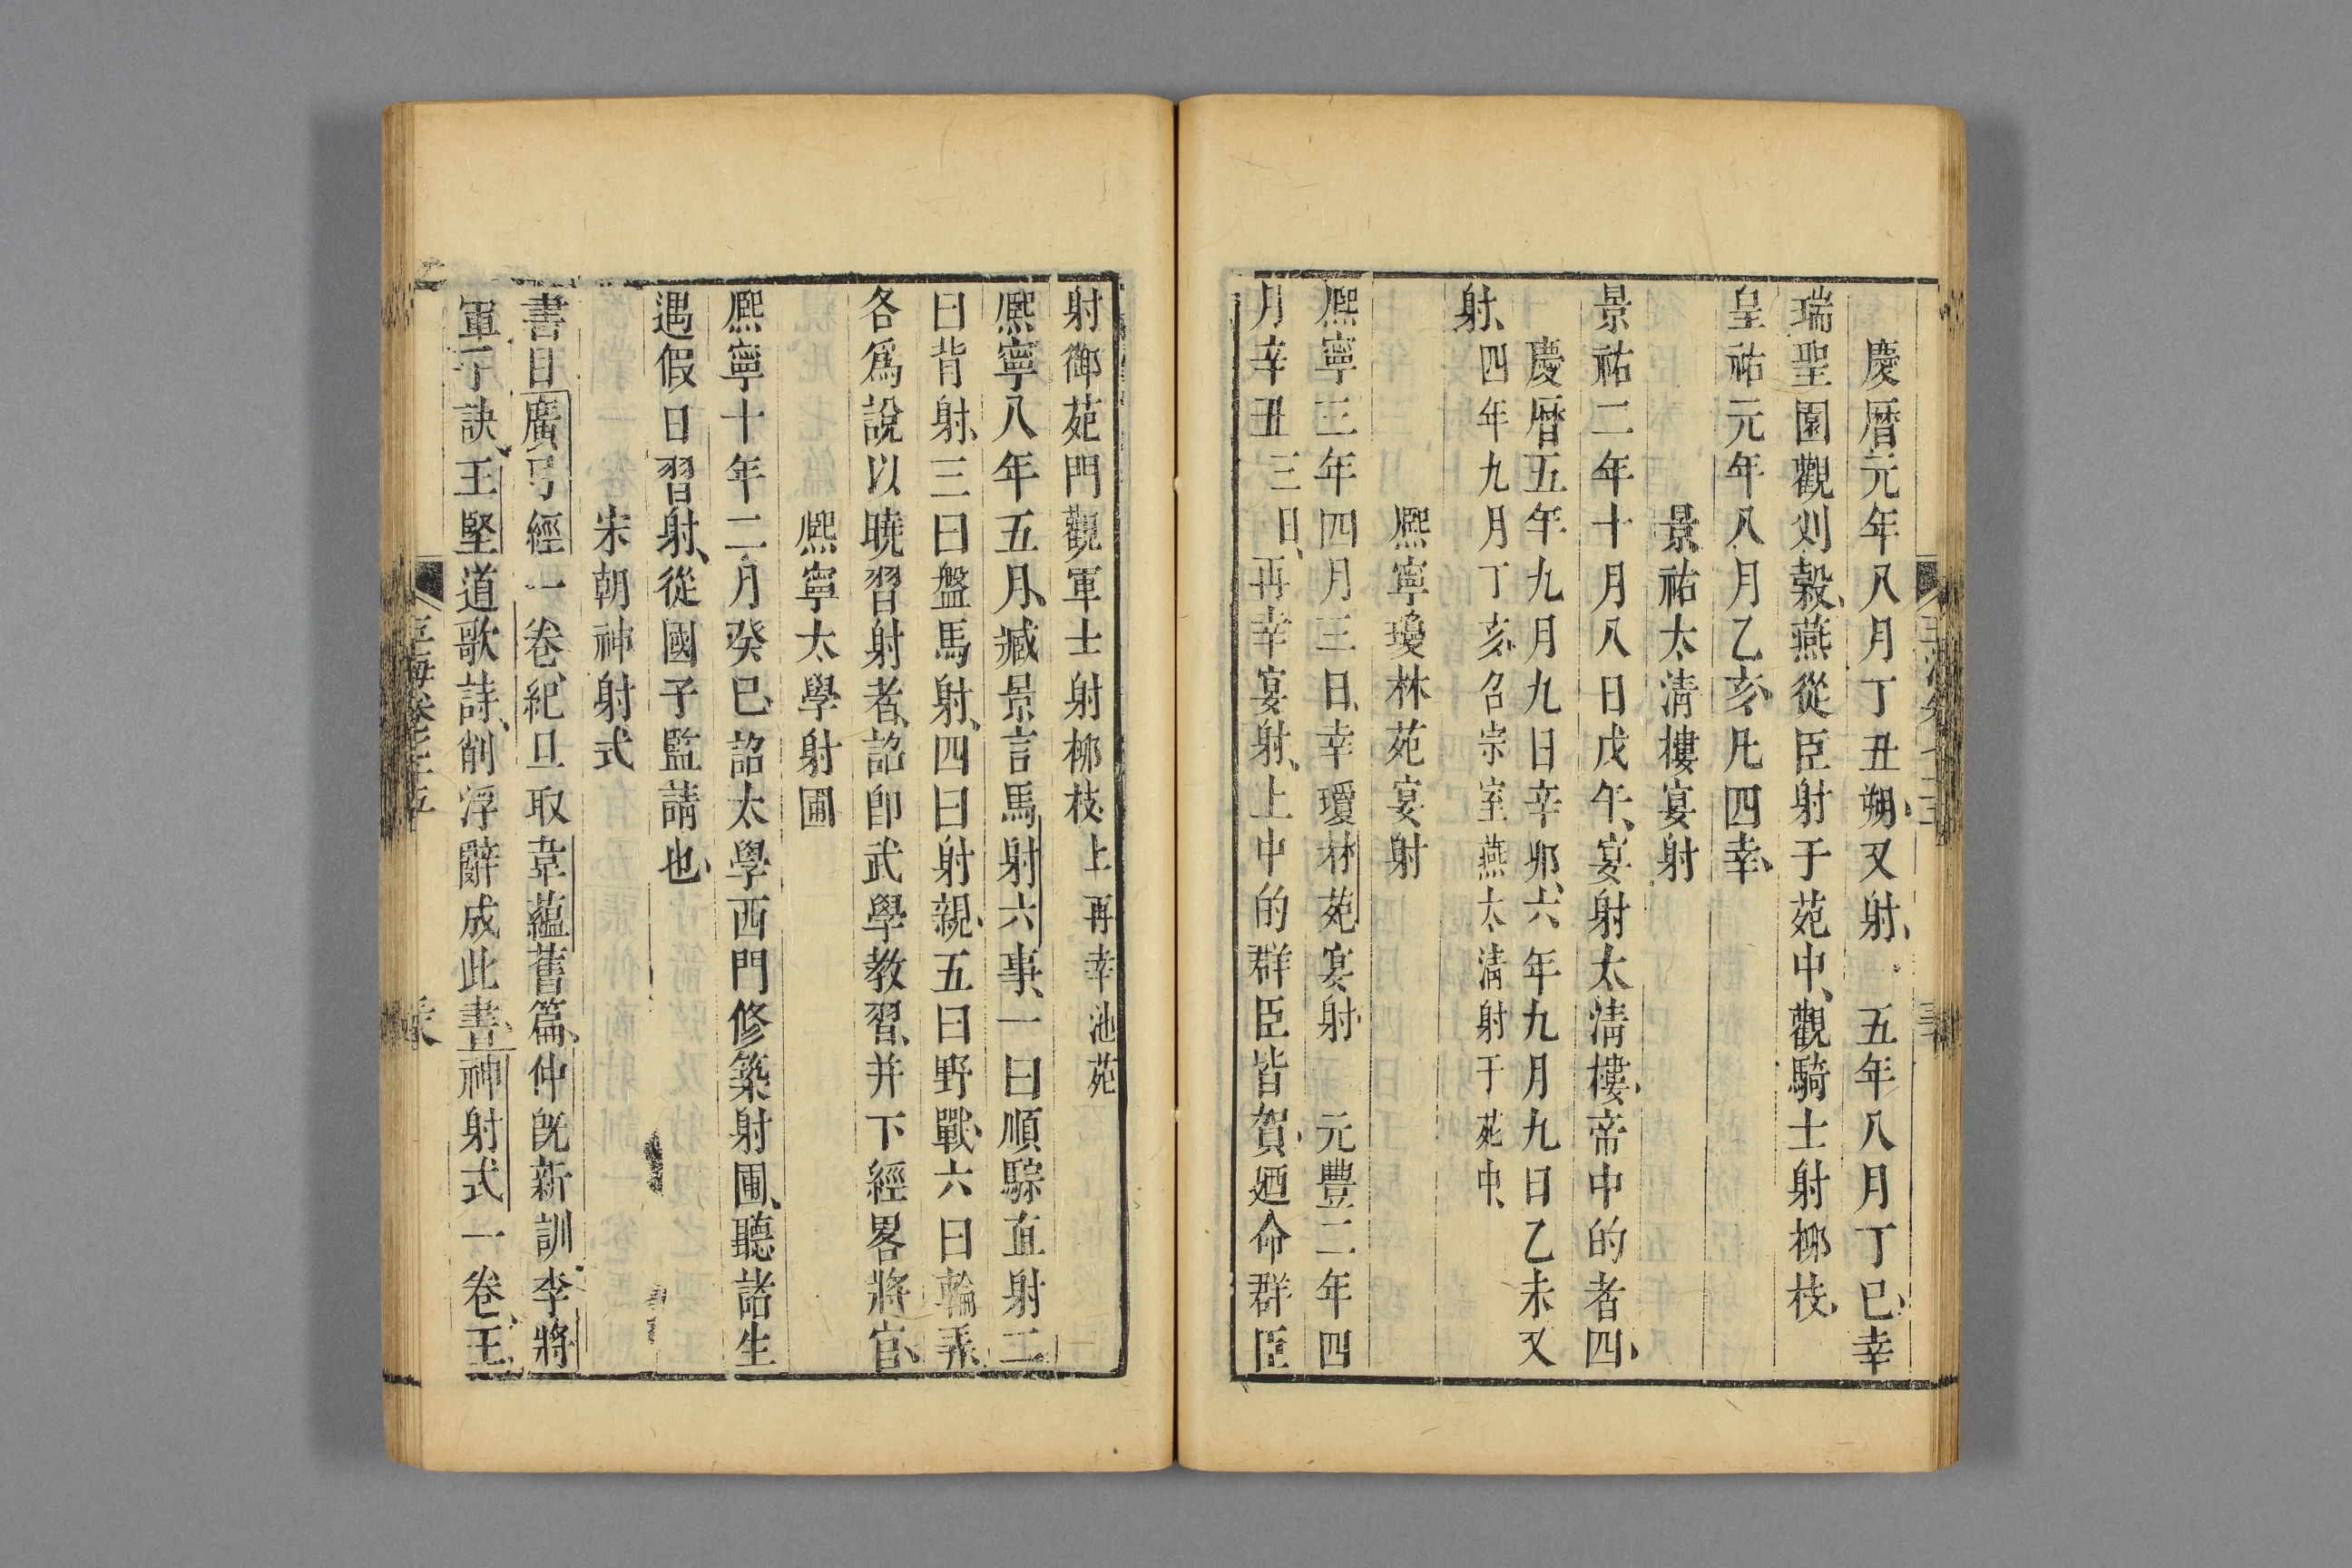 慶曆元年八月丁丑朔又射、五年八月丁巳幸
瑞聖園觀刈穀、燕從臣射于苑中、觀騎士射桺枝、
皇祐元年八月乙亥、凡四幸、
景祐太清樓宴射
景祐二年十月八日戊午、宴射太清樓、帝中的者四、
慶曆五年九月九日辛夘、六年九月九日乙未又
射、四年九月丁亥、召宗室燕太清射于苑中、
熈寧瓊林苑宴射
熈寧三年四月三日、幸瓊林苑宴射 元豐二年四
月幸丑三日、再幸宴射、上中的群臣皆賀、廼命群臣
射御苑門觀軍士射桺枝、上再幸池苑
熈寧八年五月、臧景言馬射六事、一曰順騣直射二
曰背射、三曰盤馬射、四曰射親、五曰野戰、六曰輪弄、
各爲說以曉習射者、詔卽武學教習、并下經畧將官、
熈寧太學射圃
熈寧十年二月癸巳、詔太學西門修築射圃、聽諸生
遇假日習射、從國子監請也、
宋朝神射式
書目廣弓經一卷、紀旦取韋蘊舊篇、仲旣新訓、李將
軍丁訣、王堅道歌詩、削浮辭成此書、神射式一卷、王